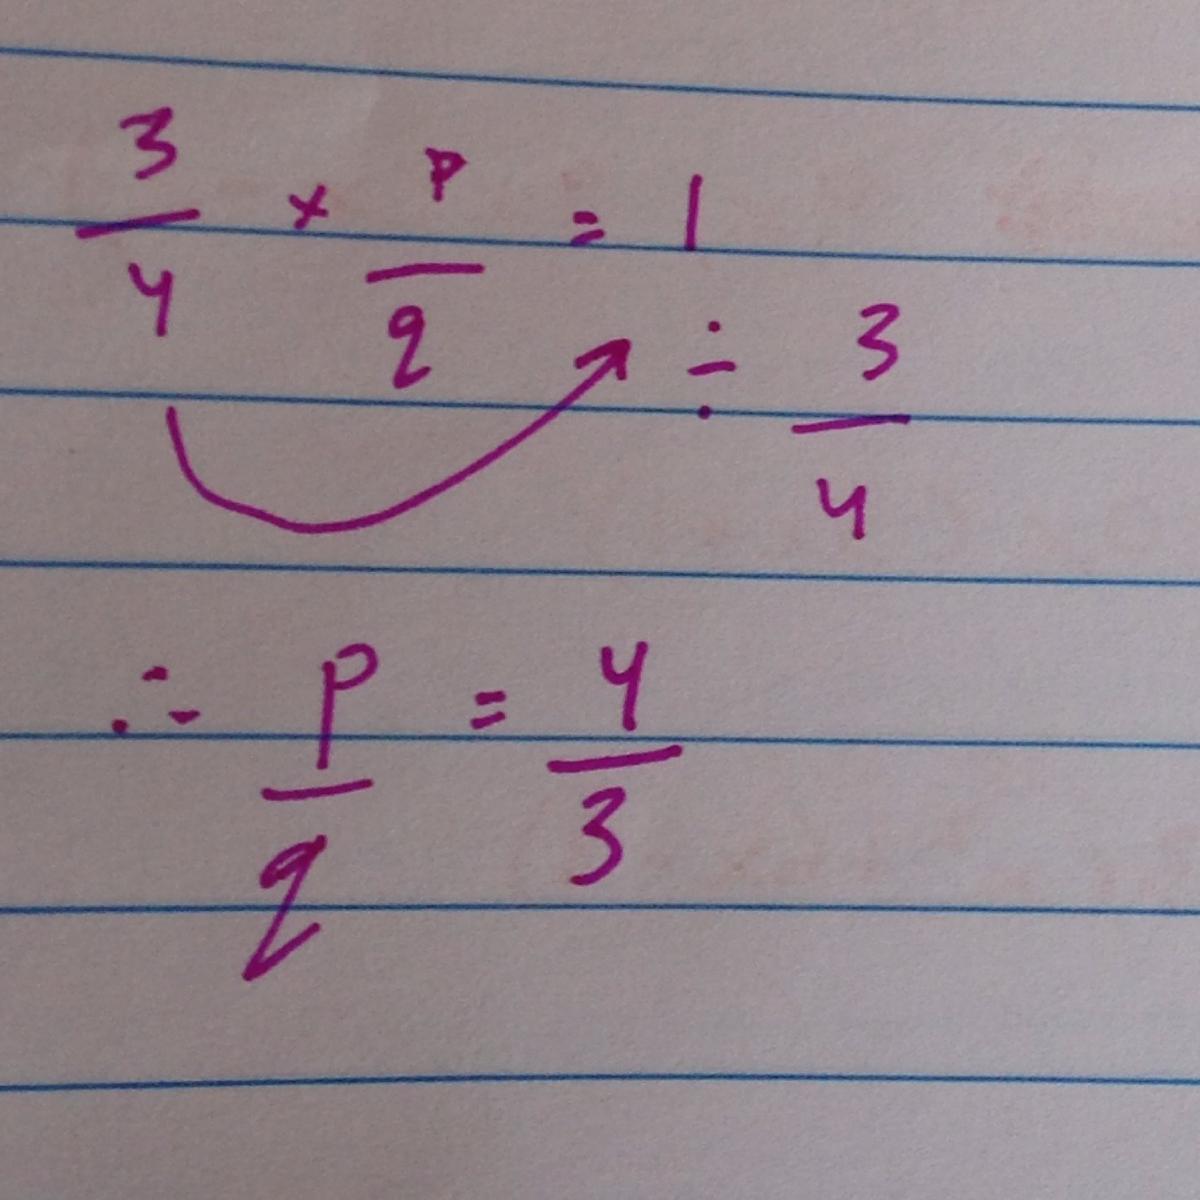 3/4 × p/q = 1
÷ 3/4
∴ p/q = 4/3